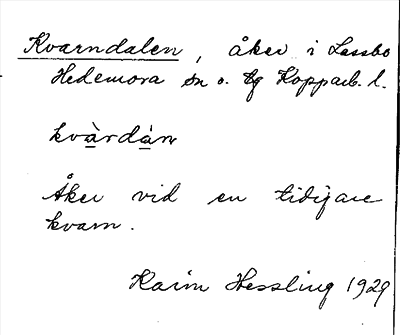 Kvarndalen, åker i Lessbo
Hedemora sn o. tg Kopparb. l.
kvàrdàn
Åker vid en tidigare
kvarn.
Karin Hessling 1929